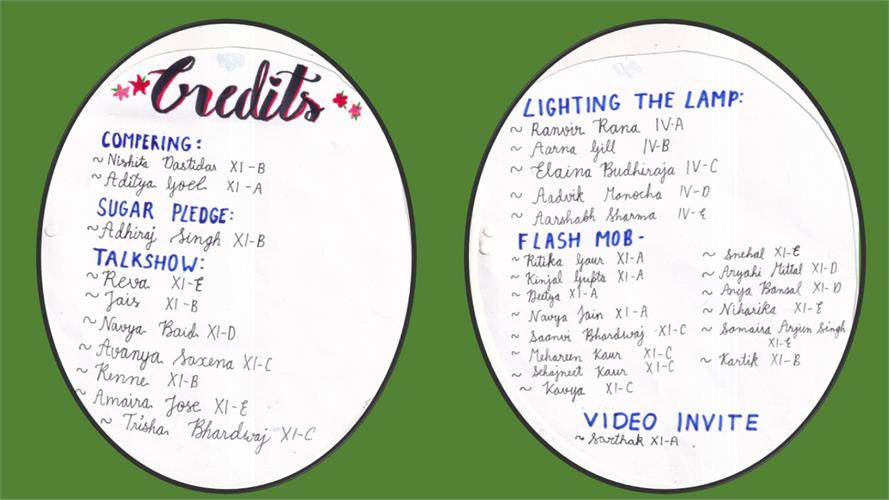 Credits
COMPERING:
~ Nishita Dastidar XI-B
~ Aditya Goel XI-A
SUGAR PLEDGE:
~ Adhiraj Singh XI-B
TALKSHOW:
~ Reva XI-E
~ Jais XI-B
~ Navya Baid XI-D
~ Avanya Saxena XI-C
~ Renne XI-B
~ Amaira Jose XI-E
~ Trisha Bhardwaj XI-C
LIGHTING THE LAMP:
~ Ranvir Rana IV-A
~ Aarna Gill IV-B
~ Elaina Budhiraja IV-C
~ Aadvik Manocha IV-D
~ Aarshabh Sharma IV-E
FLASH MOB-
~ Ritika Gaur XI-A
~ Kinjal Gupta XI-A
~ Deetya XI-A
~ Navya Jain XI-A
~ Saanvi Bhardwaj XI-C
~ Mehareen Kaur XI-C
~ Sehajneet Kaur XI-C
~ Kavya XI-C
~ Snehal XI-E
~ Aryahi Mittal XI-D
~ Anya Bansal XI-D
~ Niharika XI-E
~ Samaira Arjun Singh
XI-E
~ Kartik XI-B
VIDEO INVITE
~ Sarthak XI-A